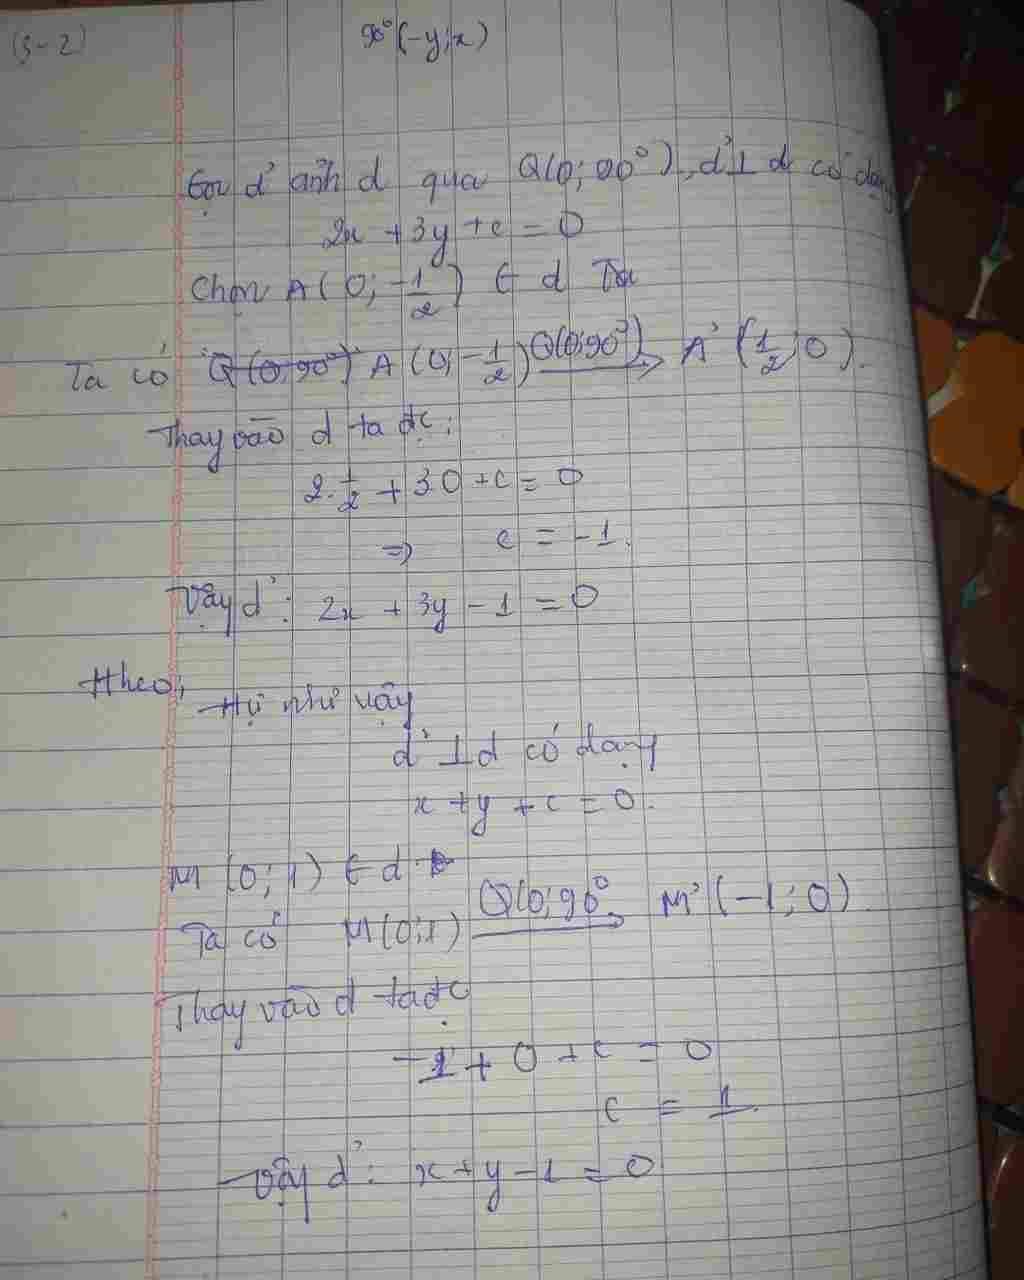 (3-2)
90° (-y; x)
Gọi d' ảnh d qua Q(0; 90°), d' ⊥ d có dạng
2x + 3y + c = 0
Chọn A(0; -1/2) ∈ d Ta
Ta có Q(0; 90°) A(0; -1/2) Q(0; 90°) → A'(1/2; 0).
Thay vào d ta đc:
2. 1/2 + 3.0 + c = 0
=> c = -1.
Vậy d': 2x + 3y - 1 = 0
Tự như vậy
d' ⊥ d có dạng
x + y + c = 0.
M (0; 1) ∈ d
Ta có M(0; 1) Q(0; 90° → M' (-1; 0)
Thay vào d ta đc
-1 + 0 + c = 0
c = 1
Vậy d': x + y - 1 = 0